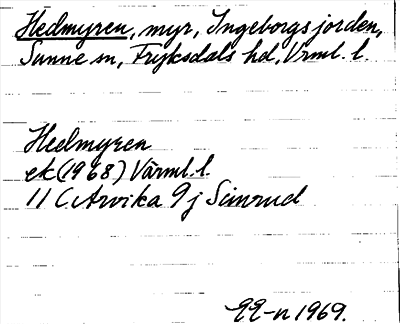 Hedmyren, myr, Ingeborgsjorden,
Sunne sn, Fryksdals hd, Vrml. l.
Hedmyren
ek (1968) Värml. l.
11 C Arvika 9 j Simrud
1969.